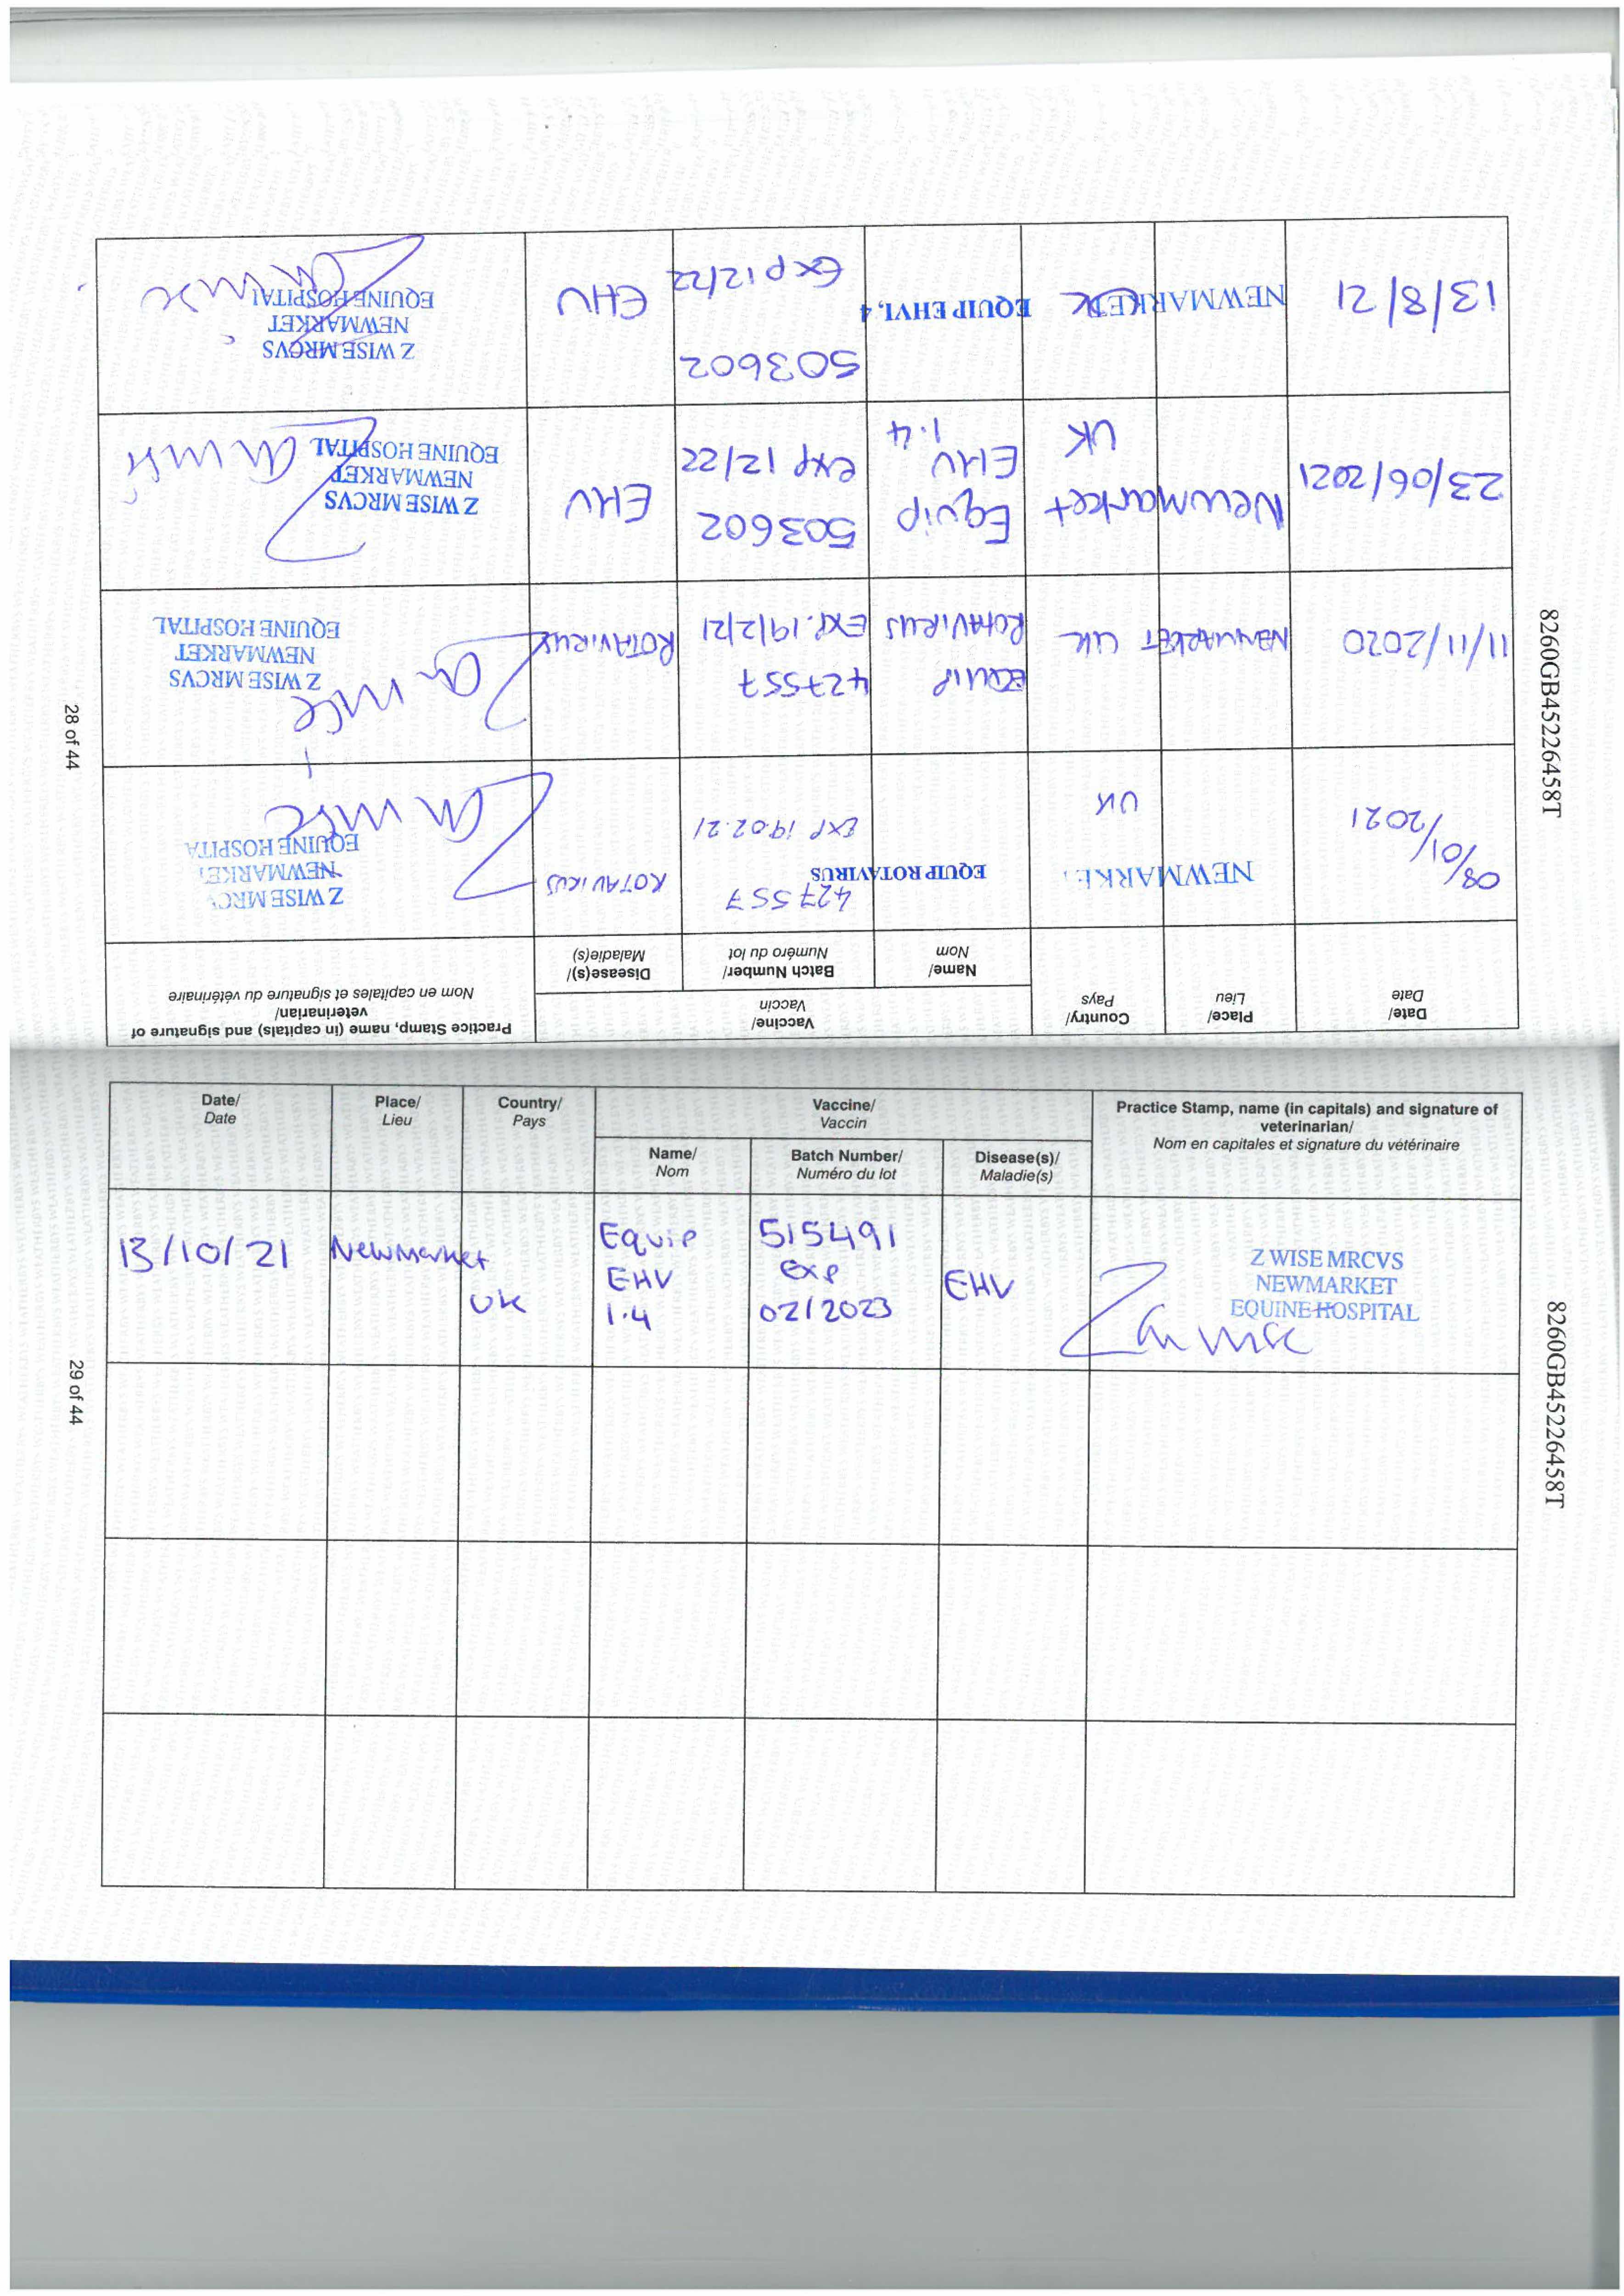 Date/
Date
Place/
Lieu
Country/
Pays
Vaccine/
Vaccin
Name/
Nom
Batch Number/
Numéro du lot
Disease(s)/
Maladie(s)
Practice Stamp, name (in capitals) and signature of
veterinarian/
Nom en capitales et signature du vétérinaire
08/01/2021
NEWMARKE
UK
EQUIP ROTAVIRUS
427557
EXP 19.02.21
ROTAVIRUS
Z WISE MRCV
NEWMARKET
EQUINE HOSPITA
11/11/2020
NEWMARKET UK
EQUIP
ROTAVIRUS
427557
EXP. 19/2/21
ROTAVIRUS
Z WISE MRCVS
NEWMARKET
EQUINE HOSPITAL
23/06/2021
Newmarket
UK
Equip
EHV
1.4
503602
exp 12/22
EHV
Z WISE MRCVS
NEWMARKET
EQUINE HOSPITAL
13/8/21
NEWMARKET
UK
EQUIP EHV1,4
503602
Exp 12/22
EHV
Z WISE MRCVS
NEWMARKET
EQUINE HOSPITAL
28 of 44
8260GB45226458T
Date/
Date
Place/
Lieu
Country/
Pays
Vaccine/
Vaccin
Name/
Nom
Batch Number/
Numéro du lot
Disease(s)/
Maladie(s)
Practice Stamp, name (in capitals) and signature of
veterinarian/
Nom en capitales et signature du vétérinaire
13/10/21
Newmarket
UK
Equip
EHV
1.4
515491
exp
02/2023
EHV
Z WISE MRCVS
NEWMARKET
EQUINE HOSPITAL
29 of 44
8260GB45226458T